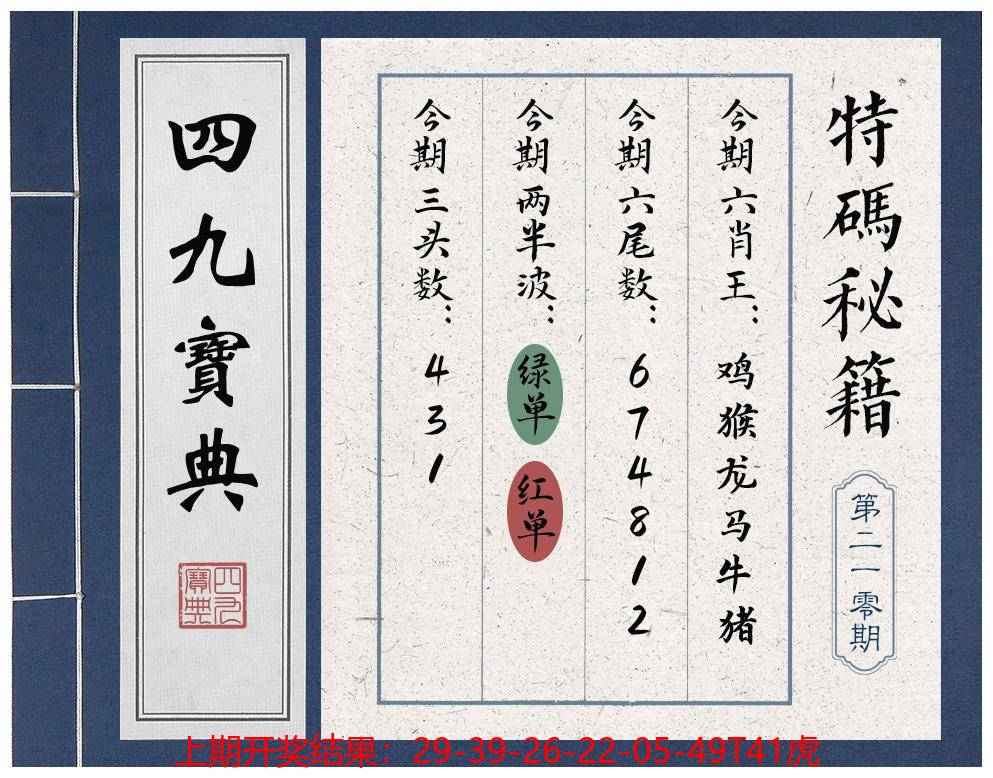 特碼秘籍
第二一零期
今期六肖王：鸡猴龙马牛猪
今期六尾数：674812
今期两半波：绿单 红单
今期三头数：431
四九寶典
四九寶典
上期开奖结果：29-39-26-22-05-49T41虎